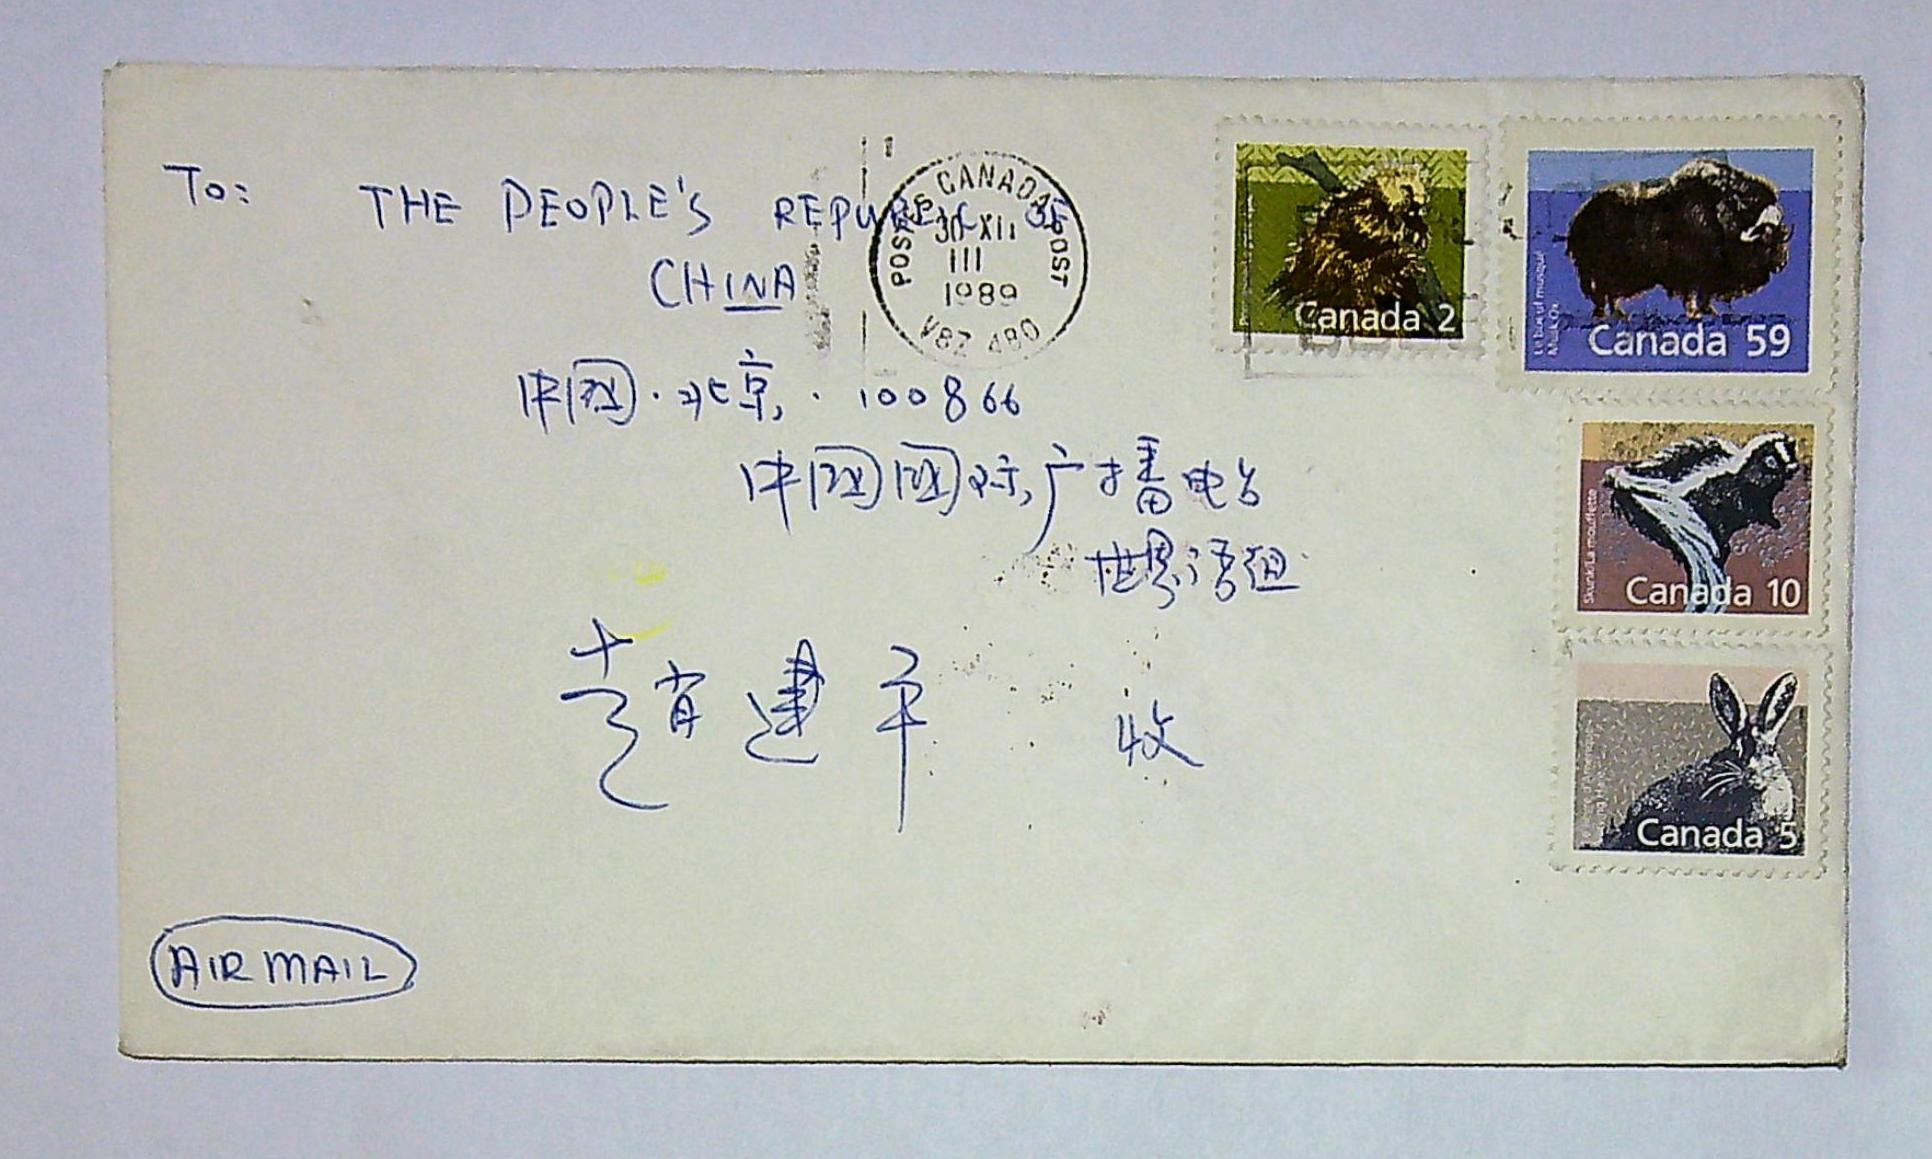 To: THE PEOPLE'S REPUBLIC OF
CHINA
中國·北京·100866
中國國际广播电台
世界语组
趙建平 收
AIR MAIL
POSTES CANADA POST
30 XII
III
1989
V8Z 4B0
Canada 2
Le bœuf musqué
Musk Ox
Canada 59
Skunk/La mouffette
Canada 10
Canada 5